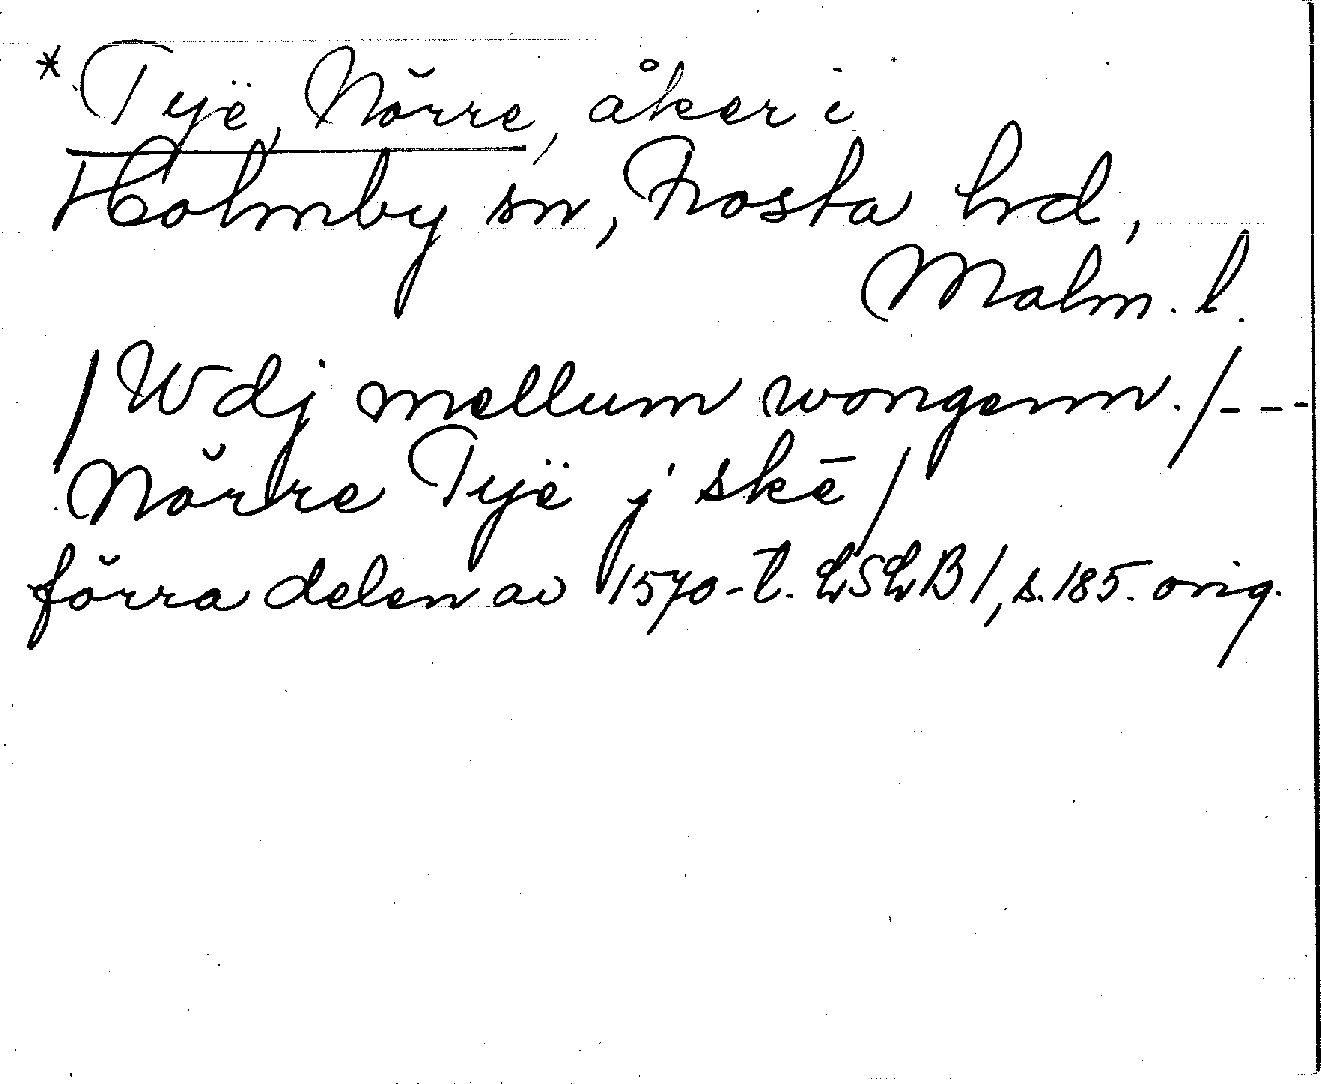 * Tyë, Nörre, åker i
Holmby sn, Frosta hd,
Malm. l.
/Wdj mellum wongenn./---
Nörre Tyë j skē/
förra delen av 1570-t. LSLB 1, s. 185. orig.